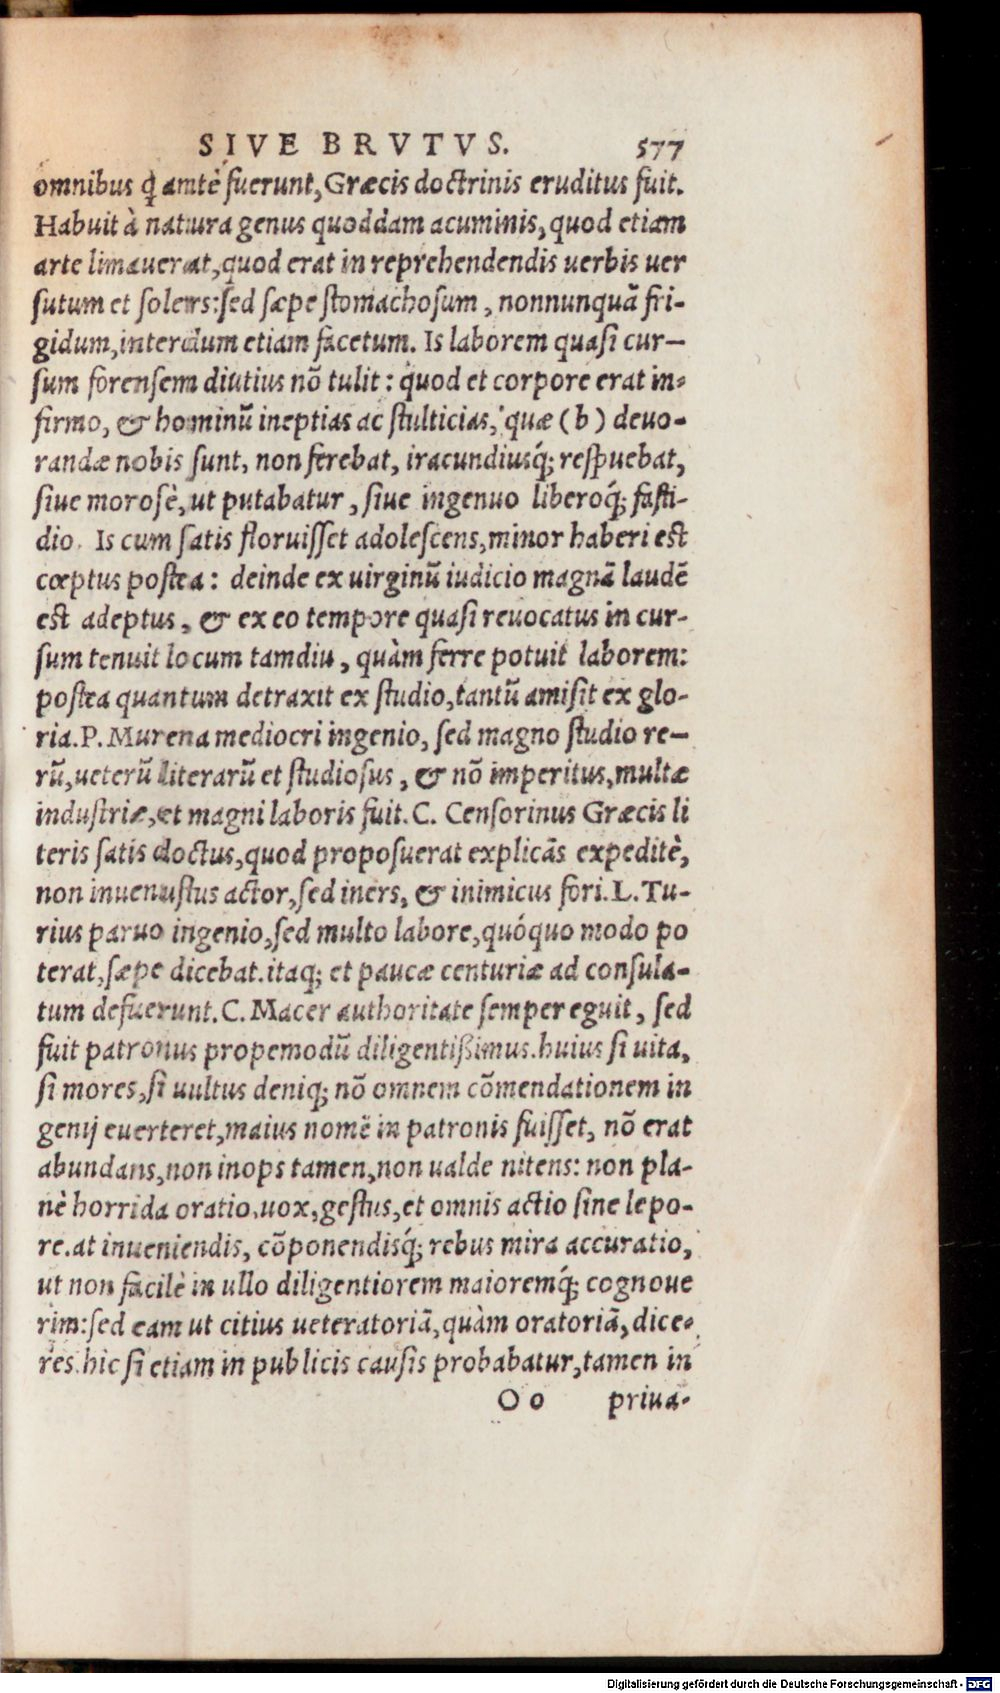 SIVE BRVTVS. 577
omnibus q̃ antè fuerunt, Græcis doctrinis eruditus fuit.
Habuit à natura genus quoddam acuminis, quod etiam
arte limauerat, quod erat in reprehendendis uerbis uer
sutum et solers: sed sæpe stomachosum, nonnunquã fri-
gidum, interdum etiam facetum. Is laborem quasi cur-
sum forensem diutius nõ tulit: quod et corpore erat in-
firmo, & hominũ ineptias ac stulticias, quæ (b) deuo-
randæ nobis sunt, non ferebat, iracundiusq́; respuebat,
siue morosè, ut putabatur, siue ingenuo liberoq́; fasti-
dio. Is cum satis floruisset adolescens, minor haberi est
cœptus postea: deinde ex uirginũ iudicio magnã laudẽ
est adeptus, & ex eo tempore quasi reuocatus in cur-
sum tenuit locum tamdiu, quàm ferre potuit laborem:
postea quantum detraxit ex studio, tantũ amisit ex glo-
ria. P. Murena mediocri ingenio, sed magno studio re-
rũ, ueterũ literarũ et studiosus, & nõ imperitus, multæ
industriæ, et magni laboris fuit. C. Censorinus Græcis li
teris satis doctus, quod proposuerat explicãs expeditè,
non inuenustus actor, sed iners, & inimicus fori. L. Tu-
rius paruo ingenio, sed multo labore, quóquo modo po
terat, sæpe dicebat. itaq; et paucæ centuriæ ad consula-
tum defuerunt. C. Macer authoritate semper eguit, sed
fuit patronus propemodũ diligentißimus. huius si uita,
si mores, si uultus deniq; nõ omnem cõmendationem in
genij euerteret, maius nomẽ in patronis fuisset, nõ erat
abundans, non inops tamen, non ualde nitens: non pla-
nè horrida oratio. uox, gestus, et omnis actio sine lepo-
re. at inueniendis, cõponendisq́; rebus mira accuratio,
ut non facilè in ullo diligentiorem maioremq́; cognoue
rim: sed eam ut citius ueteratoriã, quàm oratoriã, dice-
res. hic si etiam in publicis causis probabatur, tamen in
O o priua-
Digitalisierung gefördert durch die Deutsche Forschungsgemeinschaft - DFG